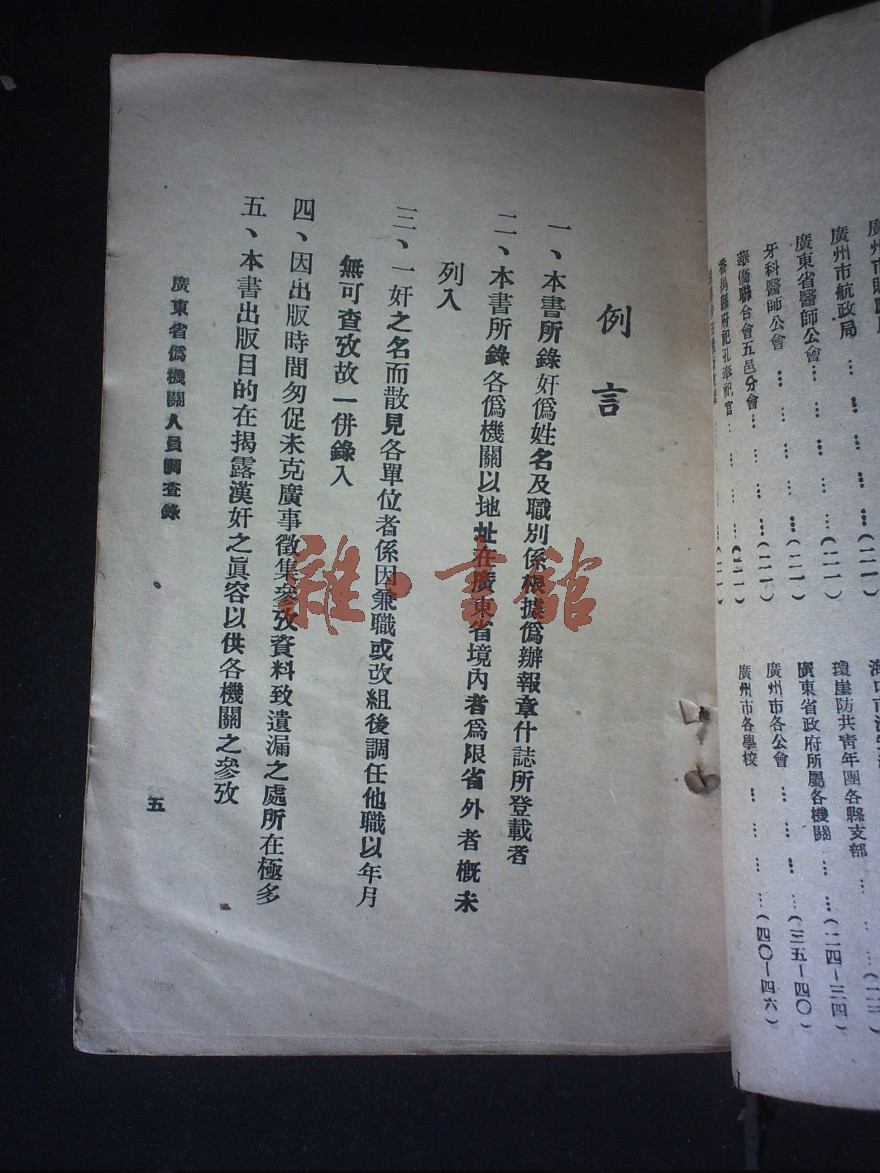 廣州市航政局 … … … … (二一)
廣東省醫師公會… … … … (二一)
牙科醫師公會 … … … … (二一)
華僑聯合會五邑分會… … … … (二一)
番禺縣府祀孔奉祀官… … … … (二一)
瓊崖防共青年團各縣支部 … … … (二二)
廣東省政府所屬各機關 … … (二四－三四)
廣州市各公會 … … … …(三五－四〇)
廣州市各學校 … … … …(四〇－四六)
例言
一、本書所錄奸僞姓名及職別係根據僞辦報章什誌所登載者
二、本書所錄各僞機關以地址在廣東省境內者爲限省外者概未
列入
三、一奸之名而散見各單位者係因兼職或改組後調任他職以年月
無可查攷故一併錄入
四、因出版時間匆促未克廣事徵集參攷資料致遺漏之處所在極多
五、本書出版目的在揭露漢奸之眞容以供各機關之參攷
廣東省僞機關人員調查錄
五
雜·書館